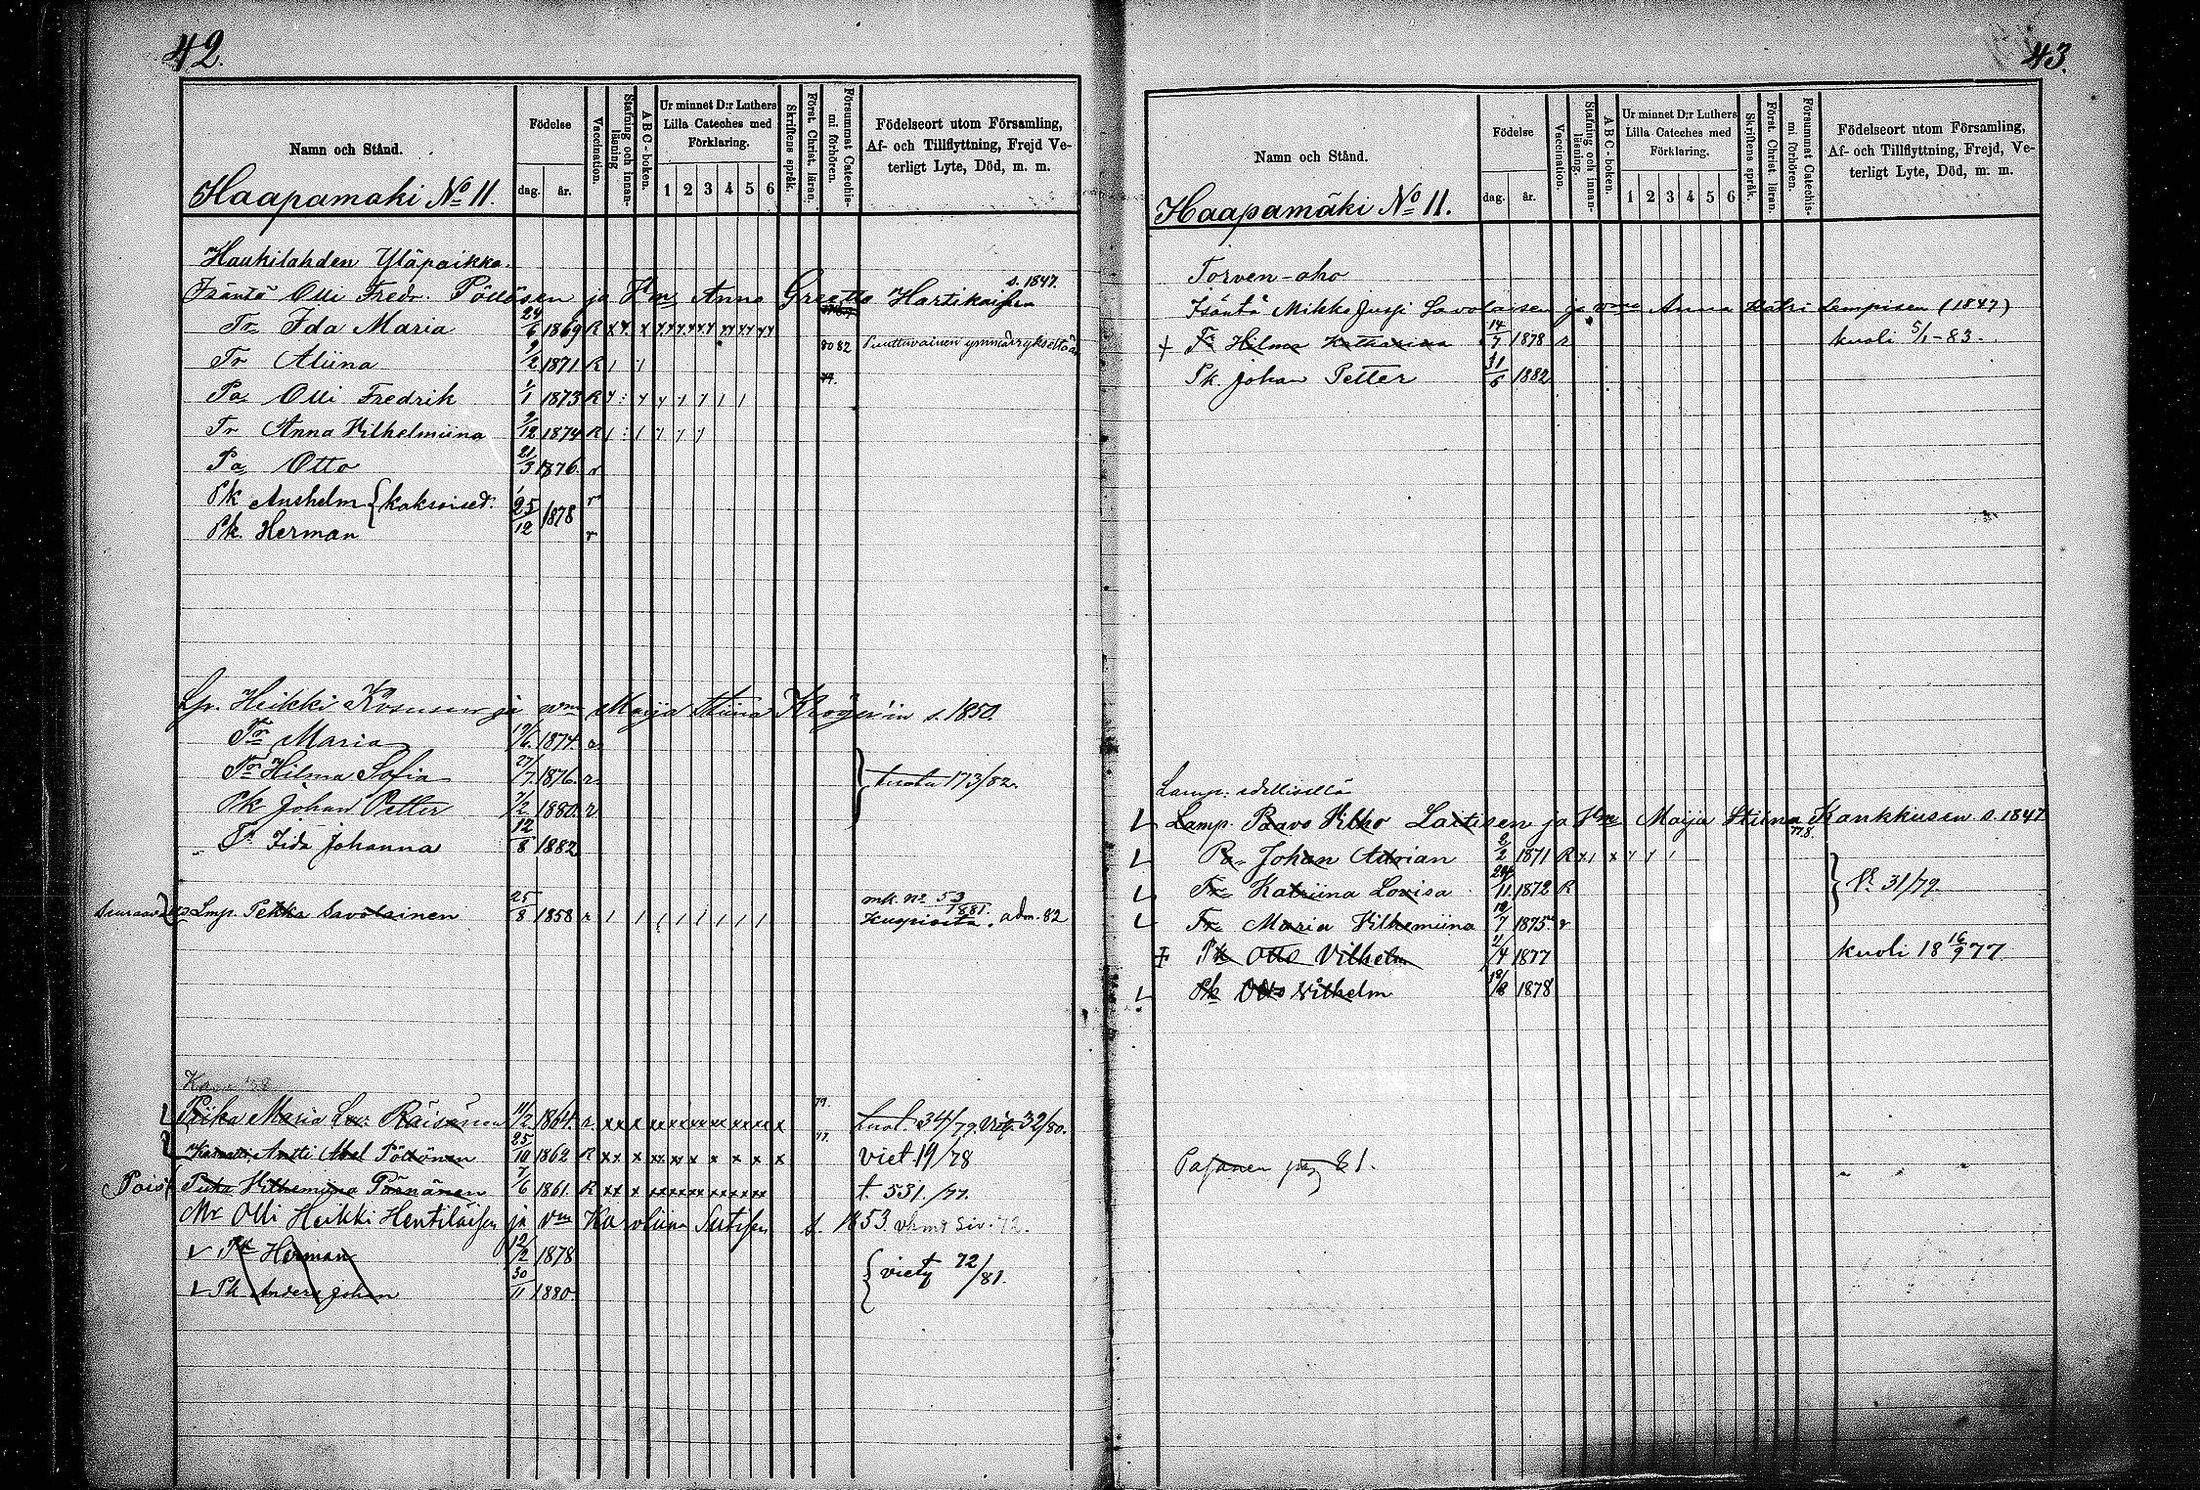 42.
Namn och Stånd.
Födelse
dag. år.
Vaccination.
Stafning och innanläsning
ABC-boken.
Ur minnet D:r Luthers Lilla Cateches med Förklaring.
1 2 3 4 5 6
Skriftens språk.
Först. Christ. läran.
Försummat Catechismi förhören.
Födelseort utom Församling, Af- och Tillflyttning, Frejd Veterligt Lyte, Död, m. m.
Haapamäki No 11.
Haukilahden Yläpaikka.
Isäntä Olli Fredr. Pöllösen ja Vm Anna Greetta Hartikaisen s. 1847.
Tr Ida Maria 24/6 1869 R
Tr Aliina 9/2 1871 R 80 82 Puuttuvainen ymmärrykseltään
Pa Olli Fredrik 1/1 1873 R
Tr Anna Vilhelmiina 9/12 1874 R
Pa Otto 21/3 1876 r
Pk Anshelm { kaksoiset. 25/12 1878 r
Pk. Herman r
Lpr. Heikki Kosusen ja vm Maija Stiina Kröger'in s. 1850.
Tr Maria 19/6 1874
Tr Hilma Sofia 27/7 1876 r } 173/82.
Pk Johan Petter 1/2 1880 r
Tr Iida Johanna 12/8 1882
Lmp. Pekka Savolainen 25/8 1858 r mk. no 53/1881. Kuopiosta. adm. 82
Piika Maria Lov: Räisänen 11/2 1864 r. 79. 34/79. 32/80.
Antti Abel Pöllönen 25/10 1862 R 77. viet 19/78
Pois Piika Vilhemiina Pärnänen 7/6 1861. R t. 531./77.
Mr Olli Heikki Hentiläisen ja vm Karoliina s. 1853. siv. 72.
Pk Herman 12/2 1878 { viety 72/81.
Pk Anders Johan 30/11 1880
43.
Namn och Stånd.
Födelse
dag. år.
Vaccination.
Stafning och innanläsning.
ABC-boken.
Ur minnet D:r Luthers Lilla Cateches med Förklaring.
1 2 3 4 5 6
Skriftens språk.
Först. Christ. läran.
Försummat Catechismi förhören.
Födelseort utom Församling, Af- och Tillflyttning, Frejd, Veterligt Lyte, Död, m. m.
Haapamäki No 11.
Torven-aho
Isäntä Mikko Jussi Savolaisen ja vmo Anna Katri Lempisen (1847)
Tr Hilma Katharina 14/7 1878 r kuoli 5/1-83.
Pk. Johan Petter 31/5 1882
Lamp: edelliseltä
Lamp. Pavo Vilho Laitisen ja Vm Maija Stiina Kankkusen s. 1847
Pa Johan Adrian 2/2 1871 R 778.
Tr Katriina Lovisa 24/11 1872 R } 31/79.
Tr Maria Vilhemiina 12/7 1875 r
Pk Otto Vilhelm 2/4 1877 kuoli 18 16/9 77
Pk Otto Vilhelm 18/8 1878
Pajanen pag 81.